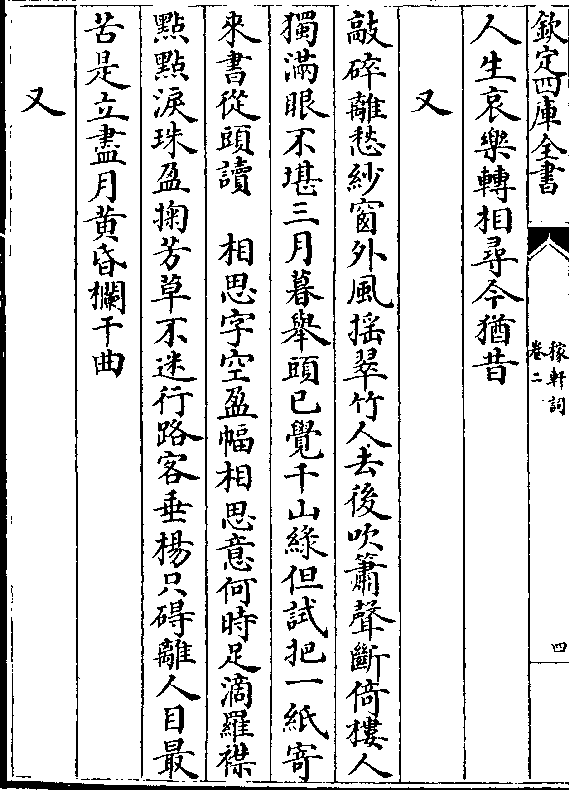 欽定四庫全書
稼軒詞
卷二
四
人生哀樂轉相尋今猶昔
又
敲碎離愁紗窗外風揺翠竹人去後吹簫聲斷倚樓人
獨滿眼不堪三月暮舉頭已覺千山綠但試把一紙寄
來書從頭讀　相思字空盈幅相思意何時足滴羅襟
點點淚珠盈掬芳草不迷行路客垂楊只碍離人目最
苦是立盡月黄昏欄干曲
又